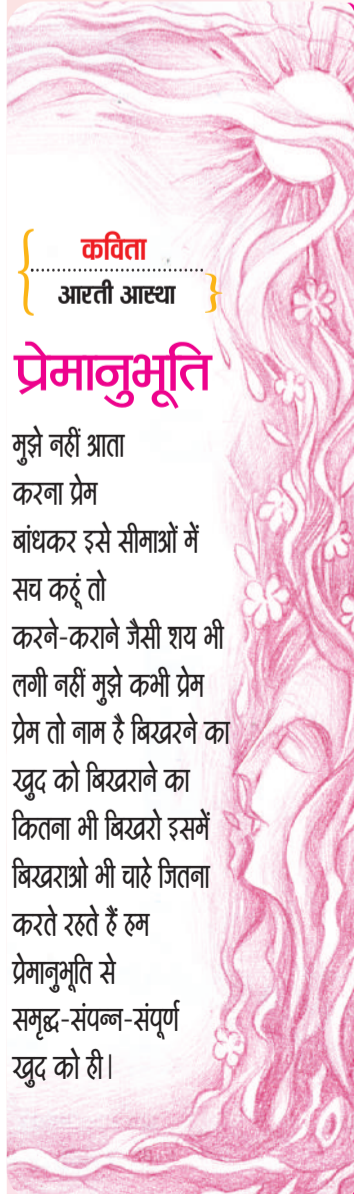 कविता
आरती आस्था
प्रेमानुभूति
मुझे नहीं आता
करना प्रेम
बांधकर इसे सीमाओं में
सच कहूं तो
करने-कराने जैसी शय भी
लगी नहीं मुझे कभी प्रेम
प्रेम तो नाम है बिखरने का
खुद को बिखराने का
कितना भी बिखरो इसमें
बिखराओ भी चाहे जितना
करते रहते हैं हम
प्रेमानुभूति से
समृद्ध-संपन्न-संपूर्ण
खुद को ही।